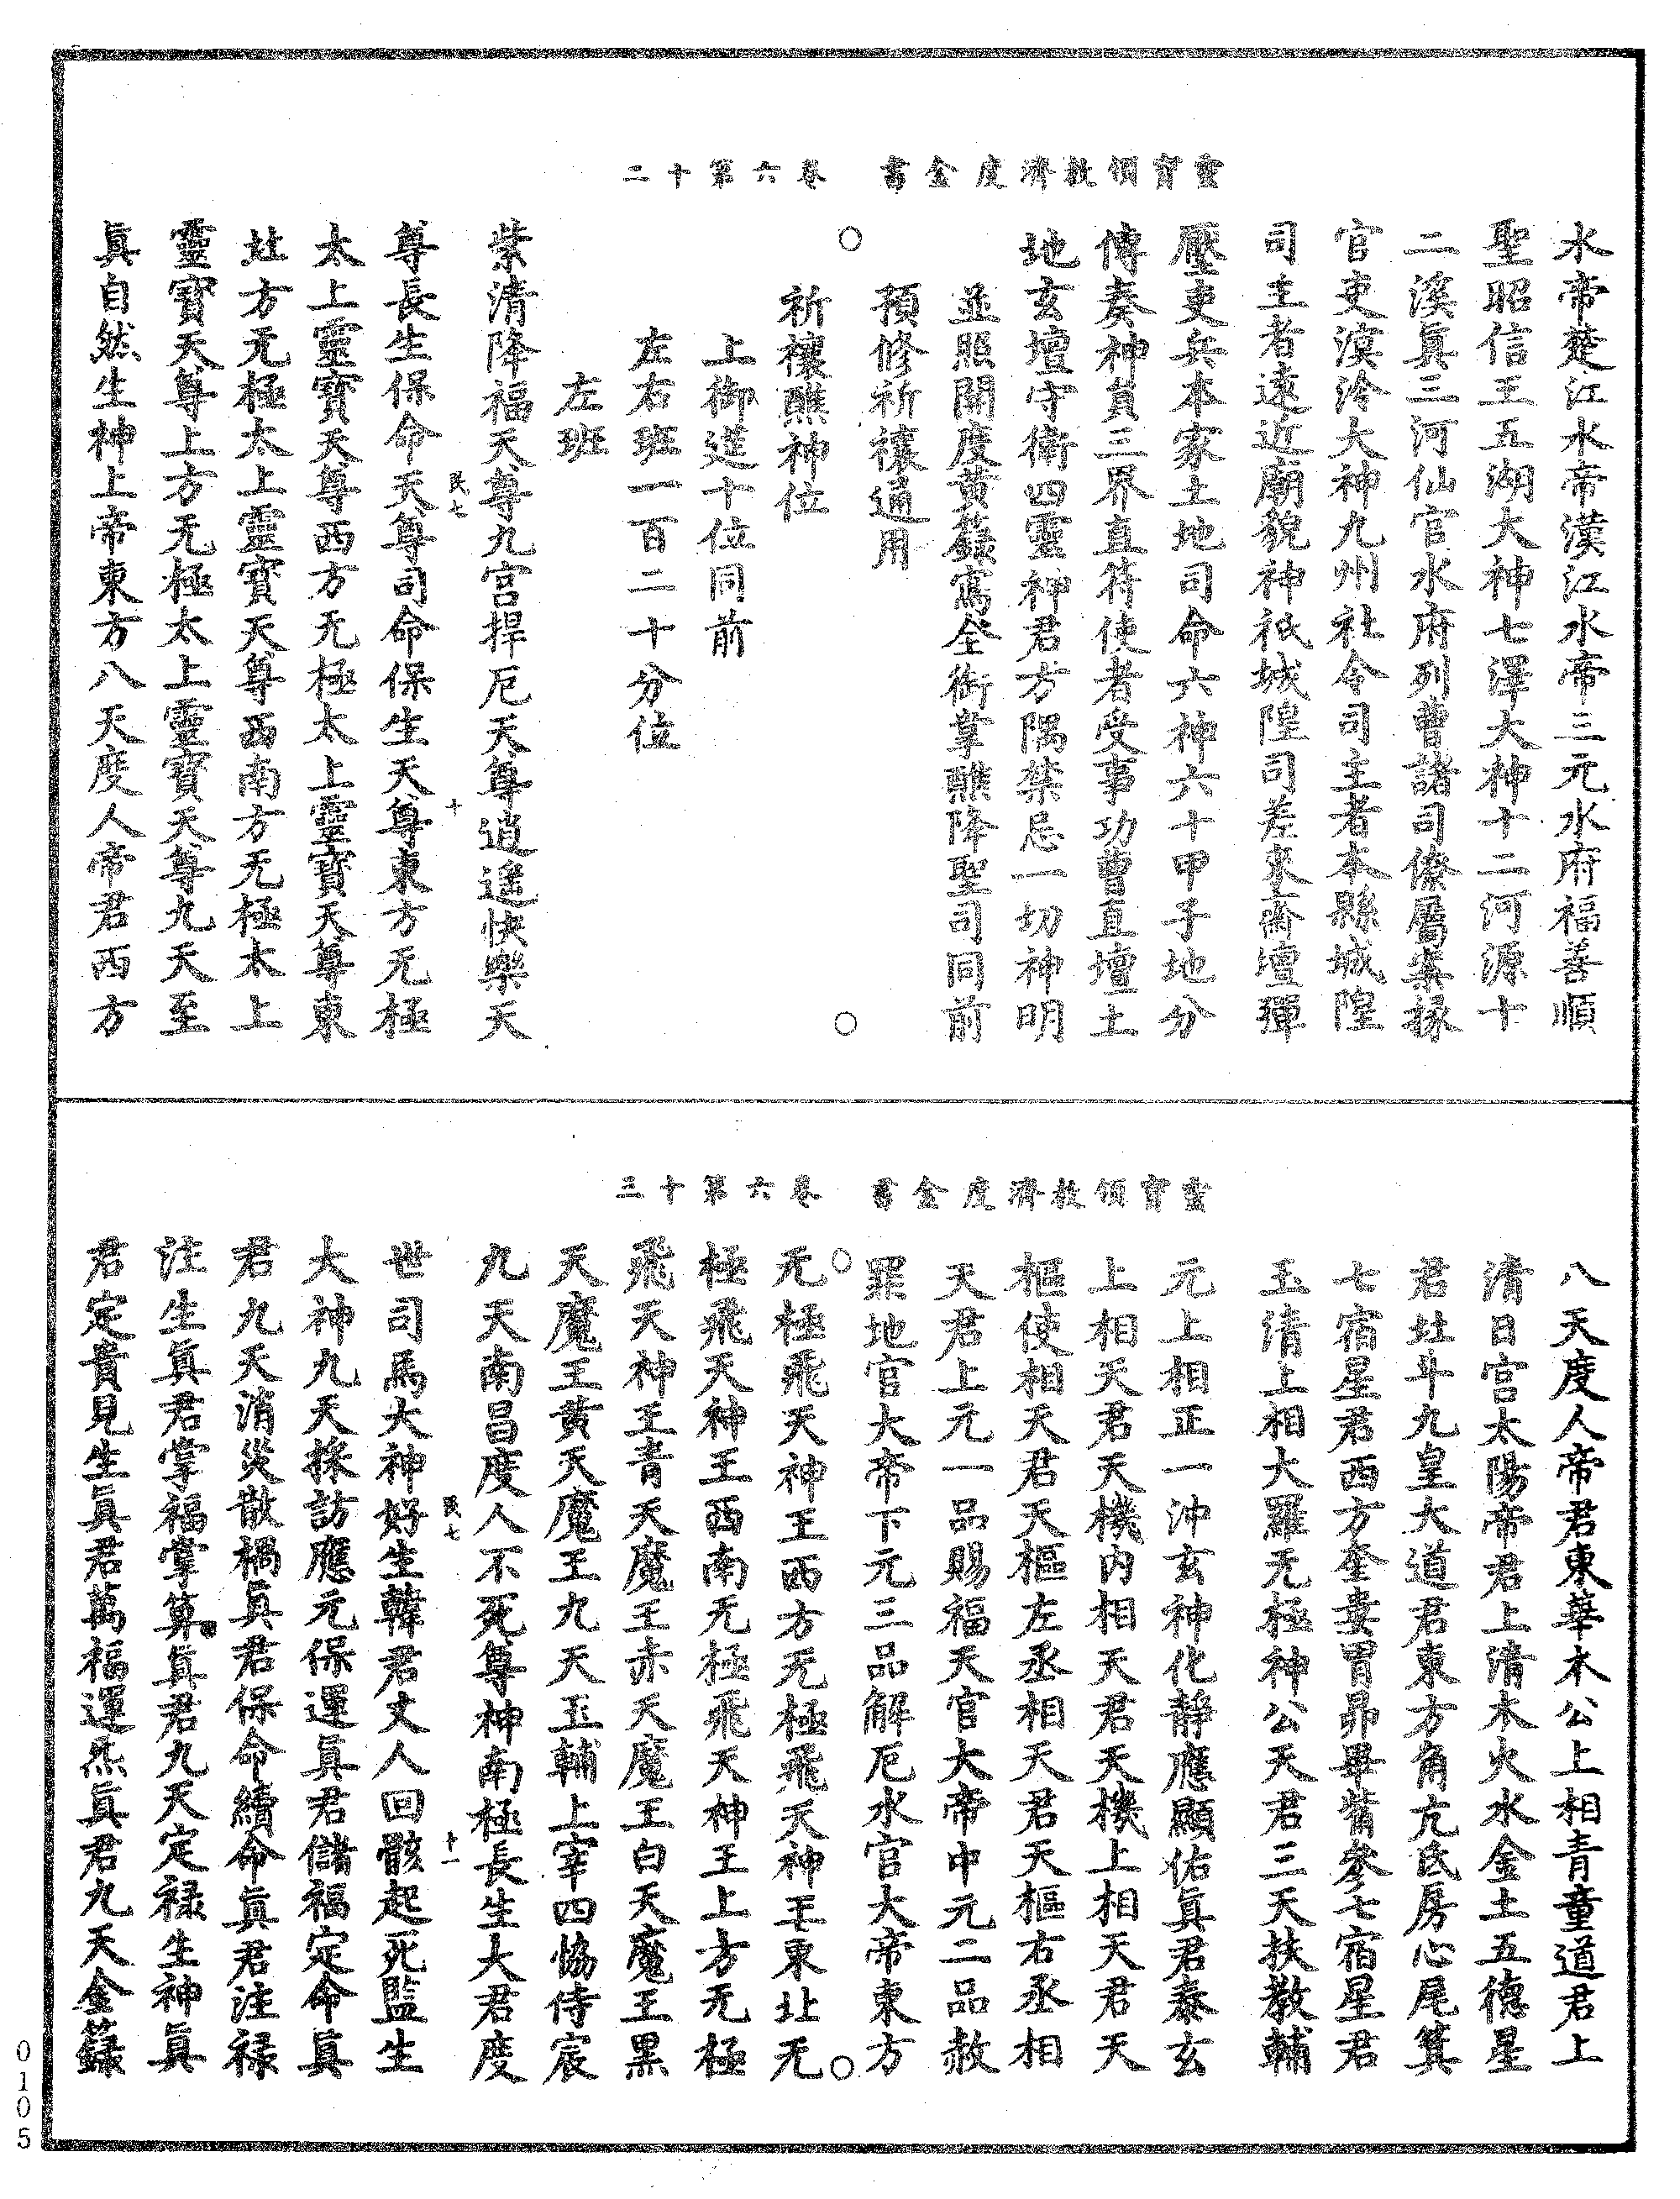 靈寶領教濟度金書　卷六第十二
水帝楚江水帝漢江水帝三元水府福善順
聖昭信王五湖大神七澤大神十二河源十
二溪眞三河仙官水府列曹諸司僚屬案掾
官吏溟泠大神九州社令司主者本縣城隍
司主者遠近廟貌神祇城隍司差來齋壇彈
壓吏兵本家土地司命六神六十甲子地分
傳奏神員三界直符使者受事功曹直壇土
地玄壇守衛四靈神君方隅禁忌一切神明
並照開度黃籙寫全銜掌醮降聖司同前
預修祈禳通用
祈禳醮神位
上御筵十位同前
左右班一百二十分位
左班
紫清降福天尊九宮捍厄天尊逍遥快樂天
民七　十
尊長生保命天尊司命保生天尊東方无極
太上靈寶天尊西方无極太上靈寶天尊東
北方无極太上靈寶天尊西南方无極太上
靈寶天尊上方无極太上靈寶天尊九天至
眞自然生神上帝東方八天度人帝君西方
靈寶領教濟度金書　卷六第十三
八天度人帝君東華木公上相青童道君上
清日宫太陽帝君上清木火水金土五德星
君北斗九皇大道君東方角亢氐房心尾箕
七宿星君西方奎婁胃昴畢觜參七宿星君
玉清上相大羅无極神公天君三天扶教輔
元上相正一沖玄神化靜應顯佑眞君泰玄
上相天君天機内相天君天機上相天君天
樞使相天君天樞左丞相天君天樞右丞相
天君上元一品賜福天官大帝中元二品赦
罪地官大帝下元三品解厄水官大帝東方
无極飛天神王西方无極飛天神王東北无
極飛天神王西南无極飛天神王上方无極
飛天神王青天魔王赤天魔王白天魔王黑
天魔王黄天魔王九天玉輔上宰四恊侍宸
九天南昌度人不死尊神南極長生大君度
民七　十一
世司馬大神好生韓君丈人回骸起死監生
大神九天採訪應元保運眞君儲福定命眞
君九天消災散禍眞君保命續命眞君注禄
注生眞君掌福掌算眞君九天定禄生神眞
君定貴見生眞君萬福運炁眞君九天金籙
0105